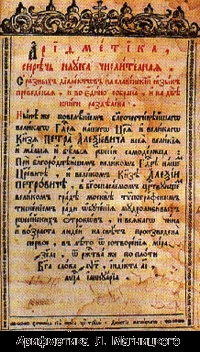 Аріѳметіка,
сирѣчь наука числителная
С разныхъ діалектовъ на славенскій языкъ
преведеная, и во едино собрана, и на двѣ
книги раздѣлена.
Нынѣ же повелѣніемъ благочестивѣйшагѡ
великагѡ Гдря нашегѡ Цря и великагѡ
Кнзя ПЕТРА АЛЕѮІЕВИЧА всея великія
и малыя и бѣлыя рѡссіи самодержца
При благороднѣйшемъ великомъ Гдрѣ нашемъ
Цревичѣ, и великомъ Кнзѣ АЛЕѮІИ
ПЕТРОВИЧѢ, в богоспасаемомъ црствующемъ
великомъ градѣ москвѣ тѵпографскимъ
тисненіемъ ради ѡбученія мудролюбивыхъ
рѡссійскихъ ѻтрокѡвъ, и всякагѡ чина
и возраста людей на свѣтъ произведена
первое, в лѣто ѿ сотворенія міра
ѿ ржтва по плоти
Бга слова индікта
мца іаннуаріа
Арифметика Л. Магницкого